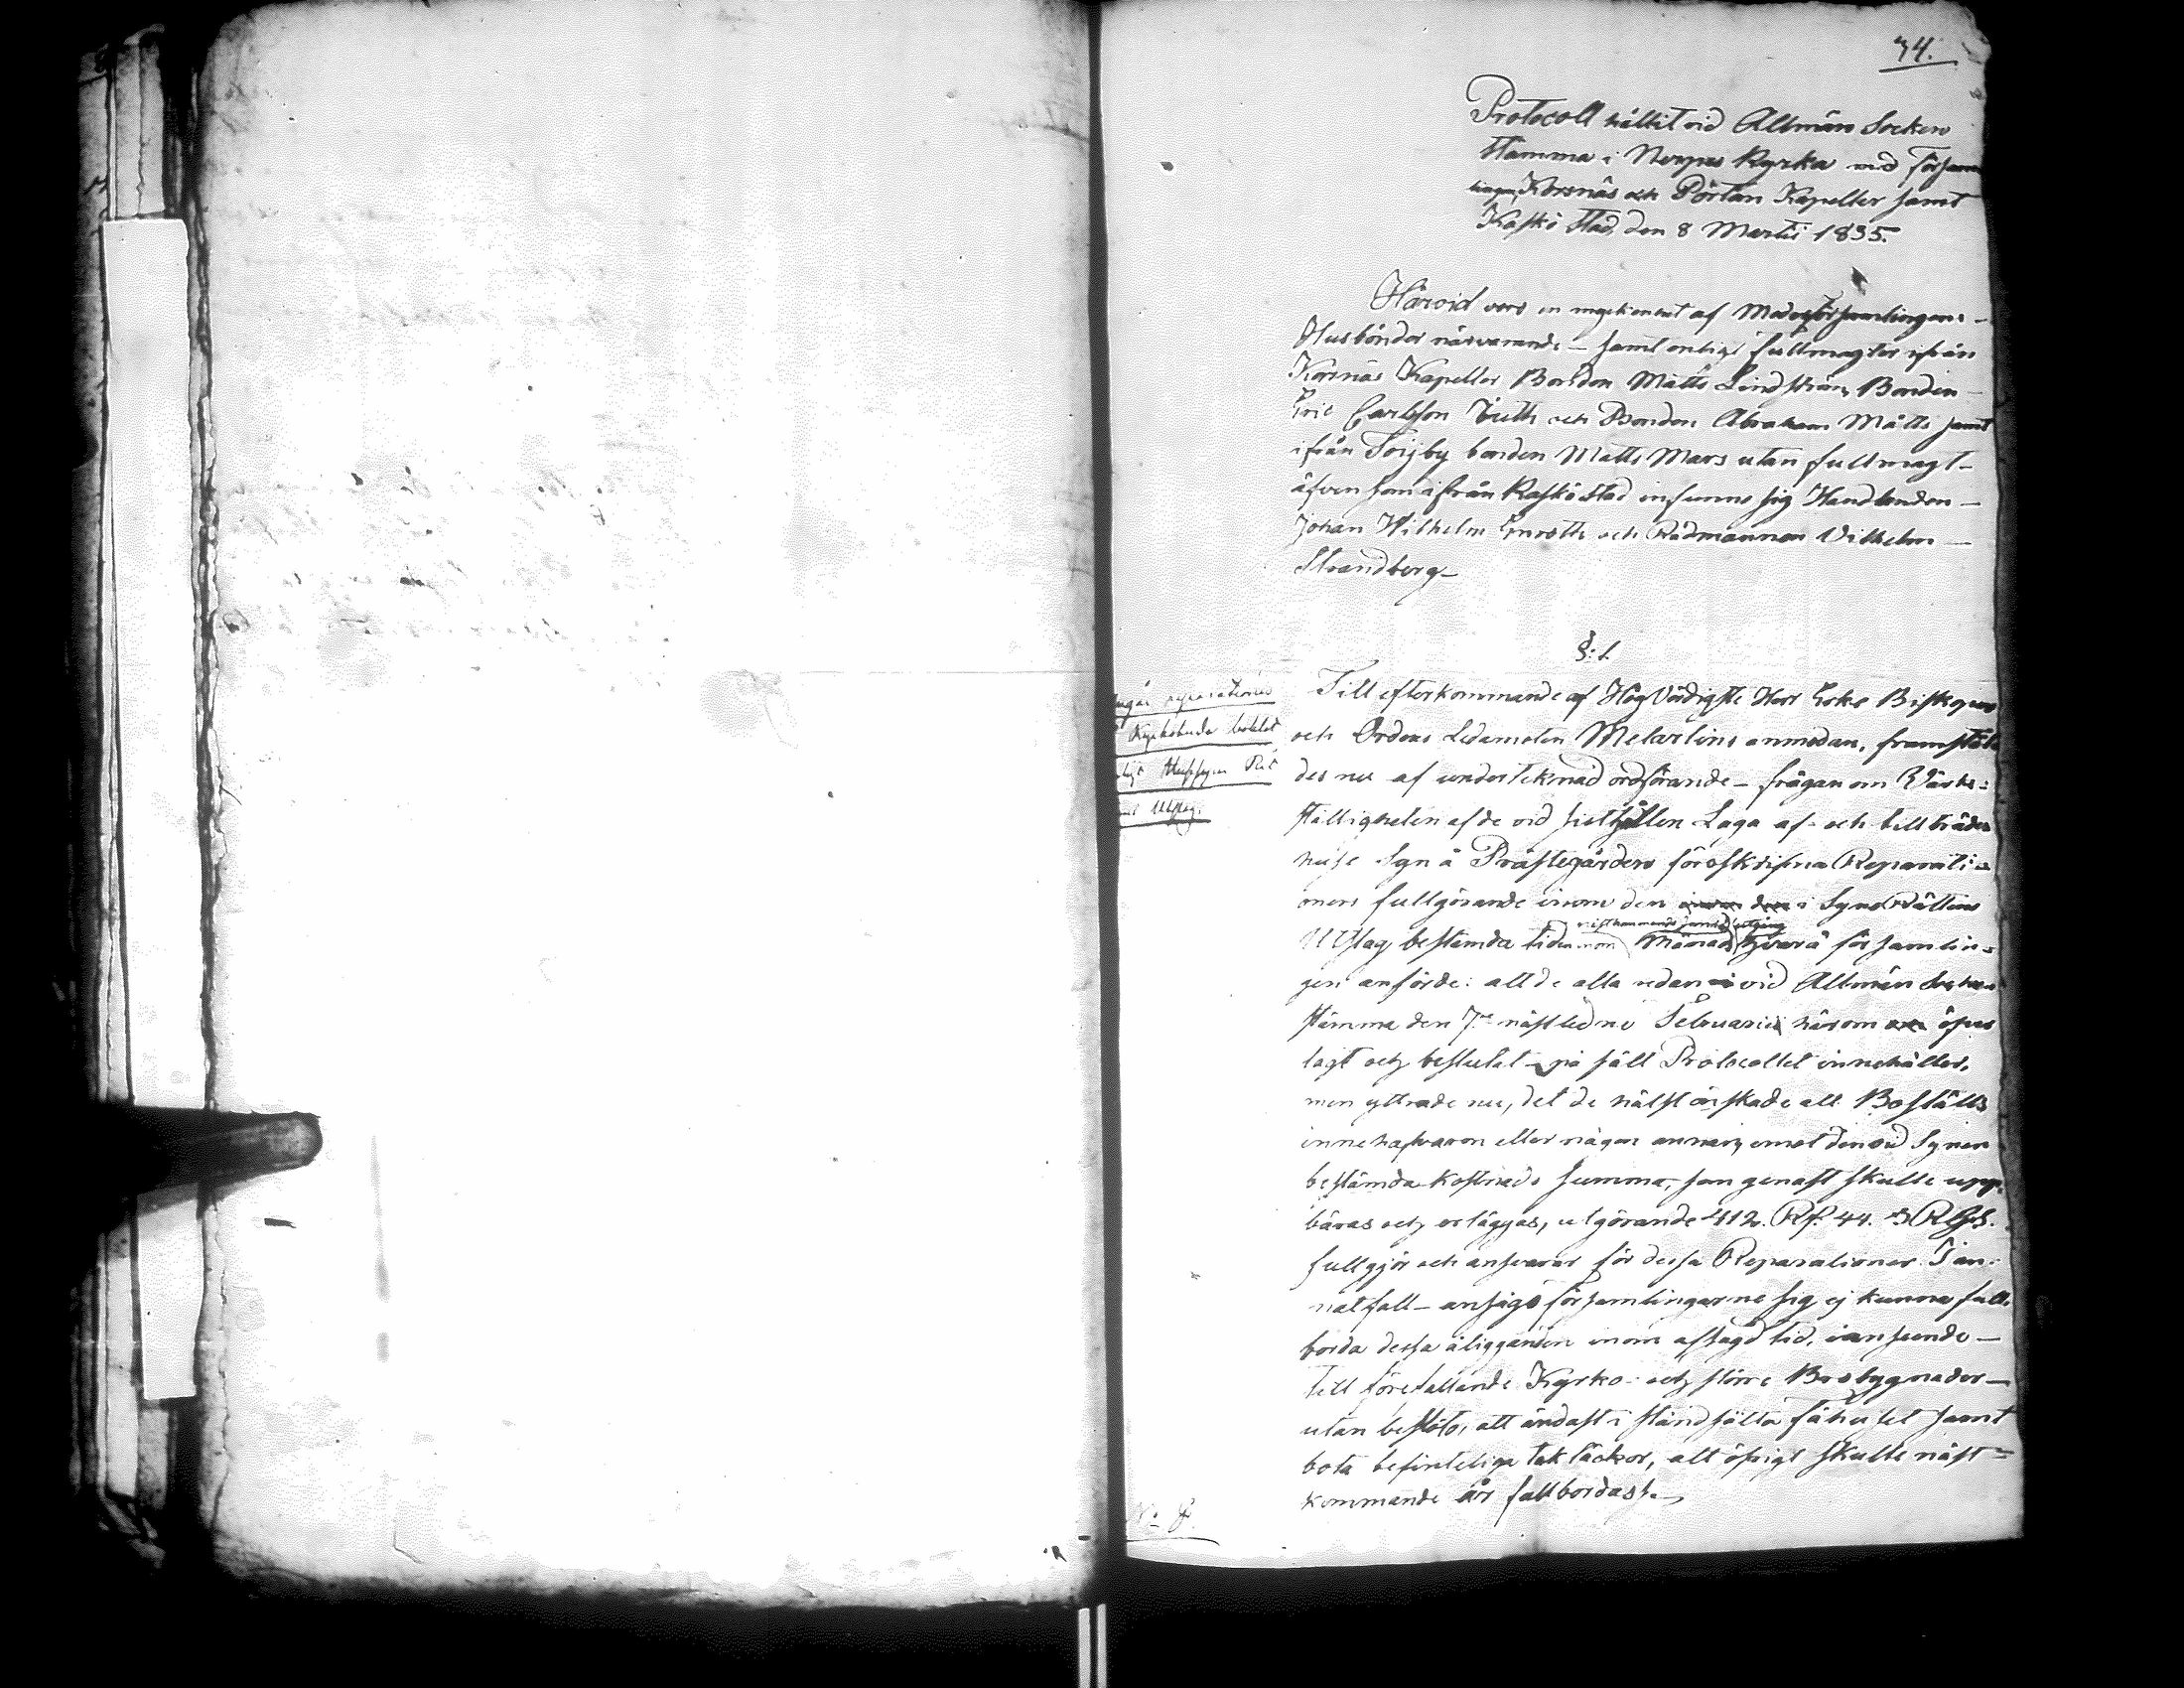 34.
Protocoll hållit vid Allmän Socken
Stämma i Nerpes Kyrka med Försam
lingen, Korsnäs och Pörtom Kapeller samt
Kaskö Stad, den 8 Martii 1835.
Härvid voro en myckenhet af Moderförsamlingens
Husbönder närvarande – samt enligt fullmagter ifrån
Korsnäs Kapeller Bonden Matts Lindström, Bonden
Eric Carlsson Juth och Bonden Abraham Mätts samt
ifrån Töijby bonden Matts Mars utan fullmagt
äfven som ifrån Kaskö Stad infunno sig Handlanden
Johan Wilhelm Enroth och Rådmannen Vilhelm
Strandberg
§: 1.
reparationer
Kyrkobords bolet
Utslag.
Till efterkommande af Hög Vördigste Herr Erke Biskopens
och Ordens Ledamoten Melartins anmodan, framstäl
des nu af undertecknad ordförande – frågan om Värk-
ställigheten af de vid sisthållen Laga af- och tillträdes
huse Syn å Prästegården föreskrifna Reparati-
oners fullgörande inom den inom den i Syne Rättens
Utslag bestämda tiden nästkommande Månads utgång hvarå församlin-
gen anförde: att de alla redan vid Allmän Socken
stämma den 7de nästledne Februarii härom öfver
lagt och beslutat på sätt Protocollet innehåller,
men yttrade nu, det de hälst önskade att Boställs
innehafvaren eller någon annan, emot den vid Synen
bestämda kostnads summa, som genast skulle upp-
bäras och erläggas, utgörande 412. Rf. 44. Rgs.
fullgjör och ansvarar för dessa Reparationer. I an-
nat fall – ansågo församlingarne sig ej kunna full-
borda dessa åligganden inom afsagd tid, i anseende
till förefallande Kyrko- och större Brobygnader
utan beslöto, att ändast i stånd sätta fähuset samt
bota befinteliga tak läckor, alt öfrigt skulle näst-
kommande år fullbordas.
No 8.